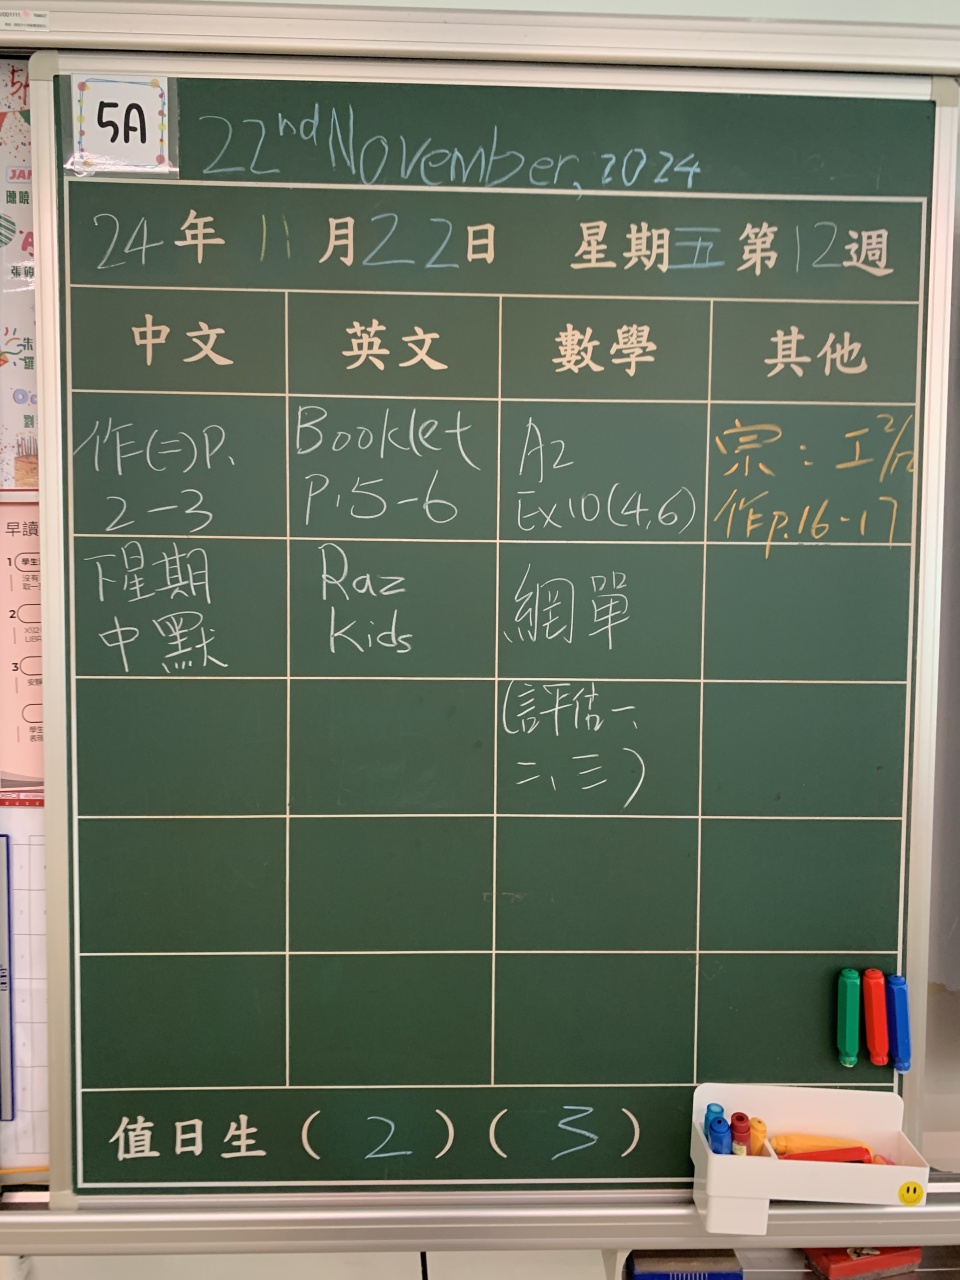 5A
22nd November, 2024
24年 11月22日 星期五 第12週
中文 英文 數學 其他
作(二)P.
2-3
Booklet
P.5-6
A2
Ex10(4,6)
宗：工2/12
作p.16-17
下星期
中默
Raz
Kids
網單
(評估一、
二、三)
值日生 ( 2 ) ( 3 )
早讀
1
2
3